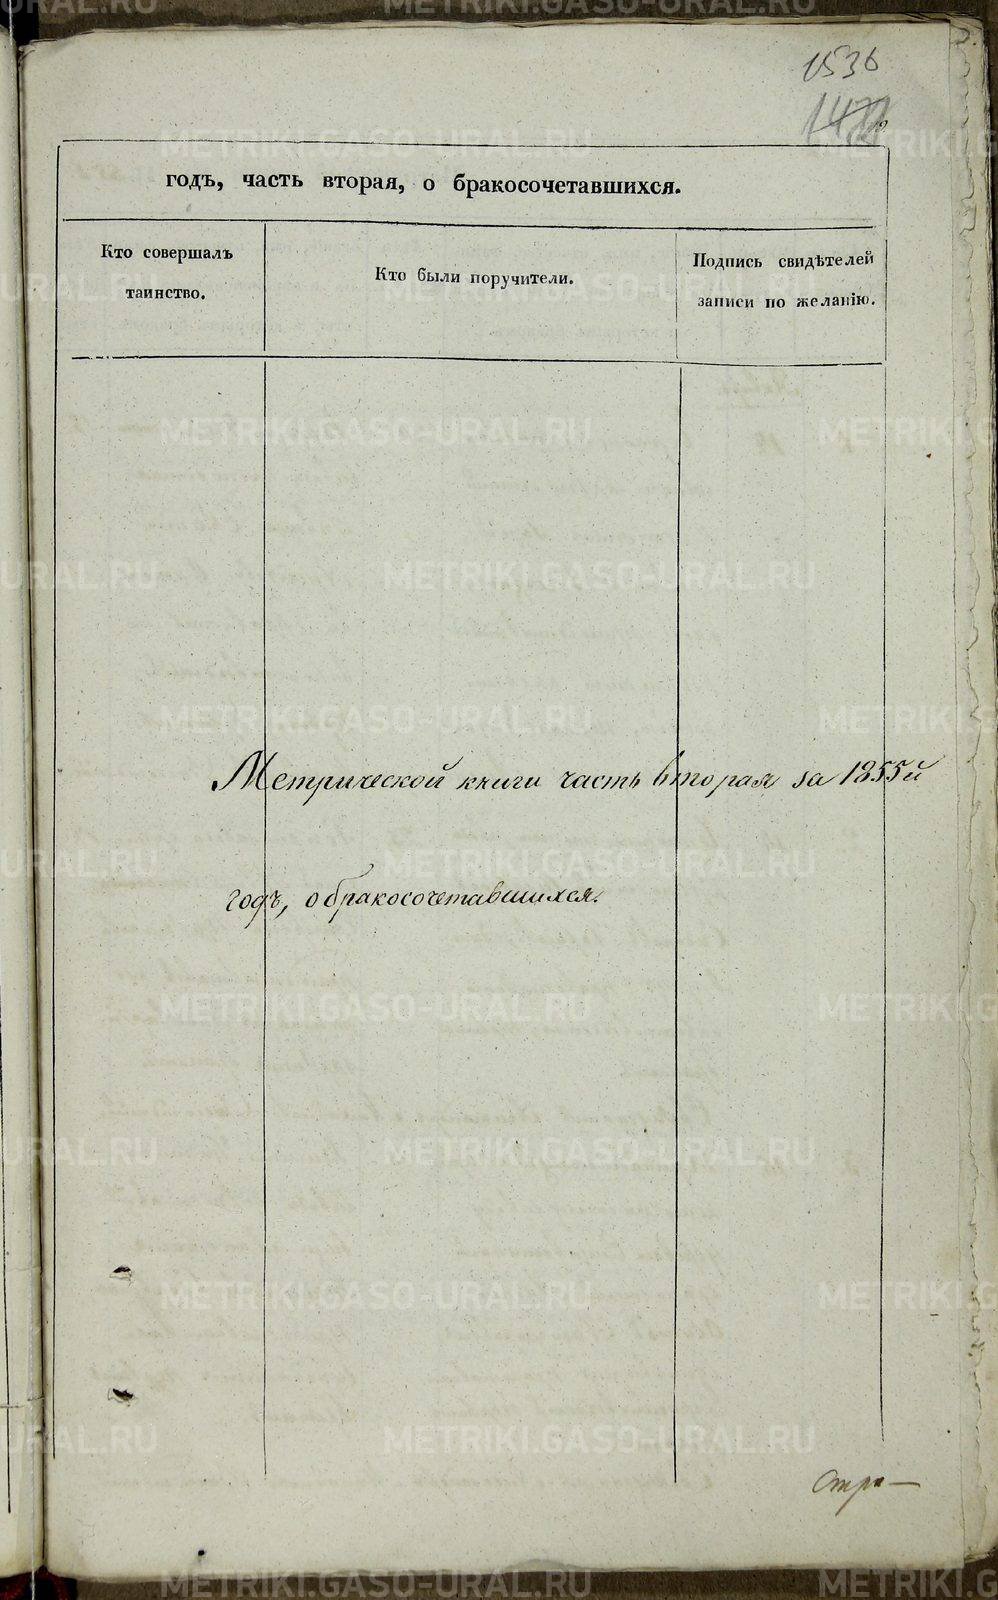 1536
годъ, часть вторая, о бракосочетавшихся.
Кто совершалъ
таинство.
Кто были поручители.
Подпись свидѣтелей
записи по желанію.
Метрической книги часть вторая за 1855й
годъ, о бракосочетавшихся.
Стра—
METRIKI.GASO-URAL.RU